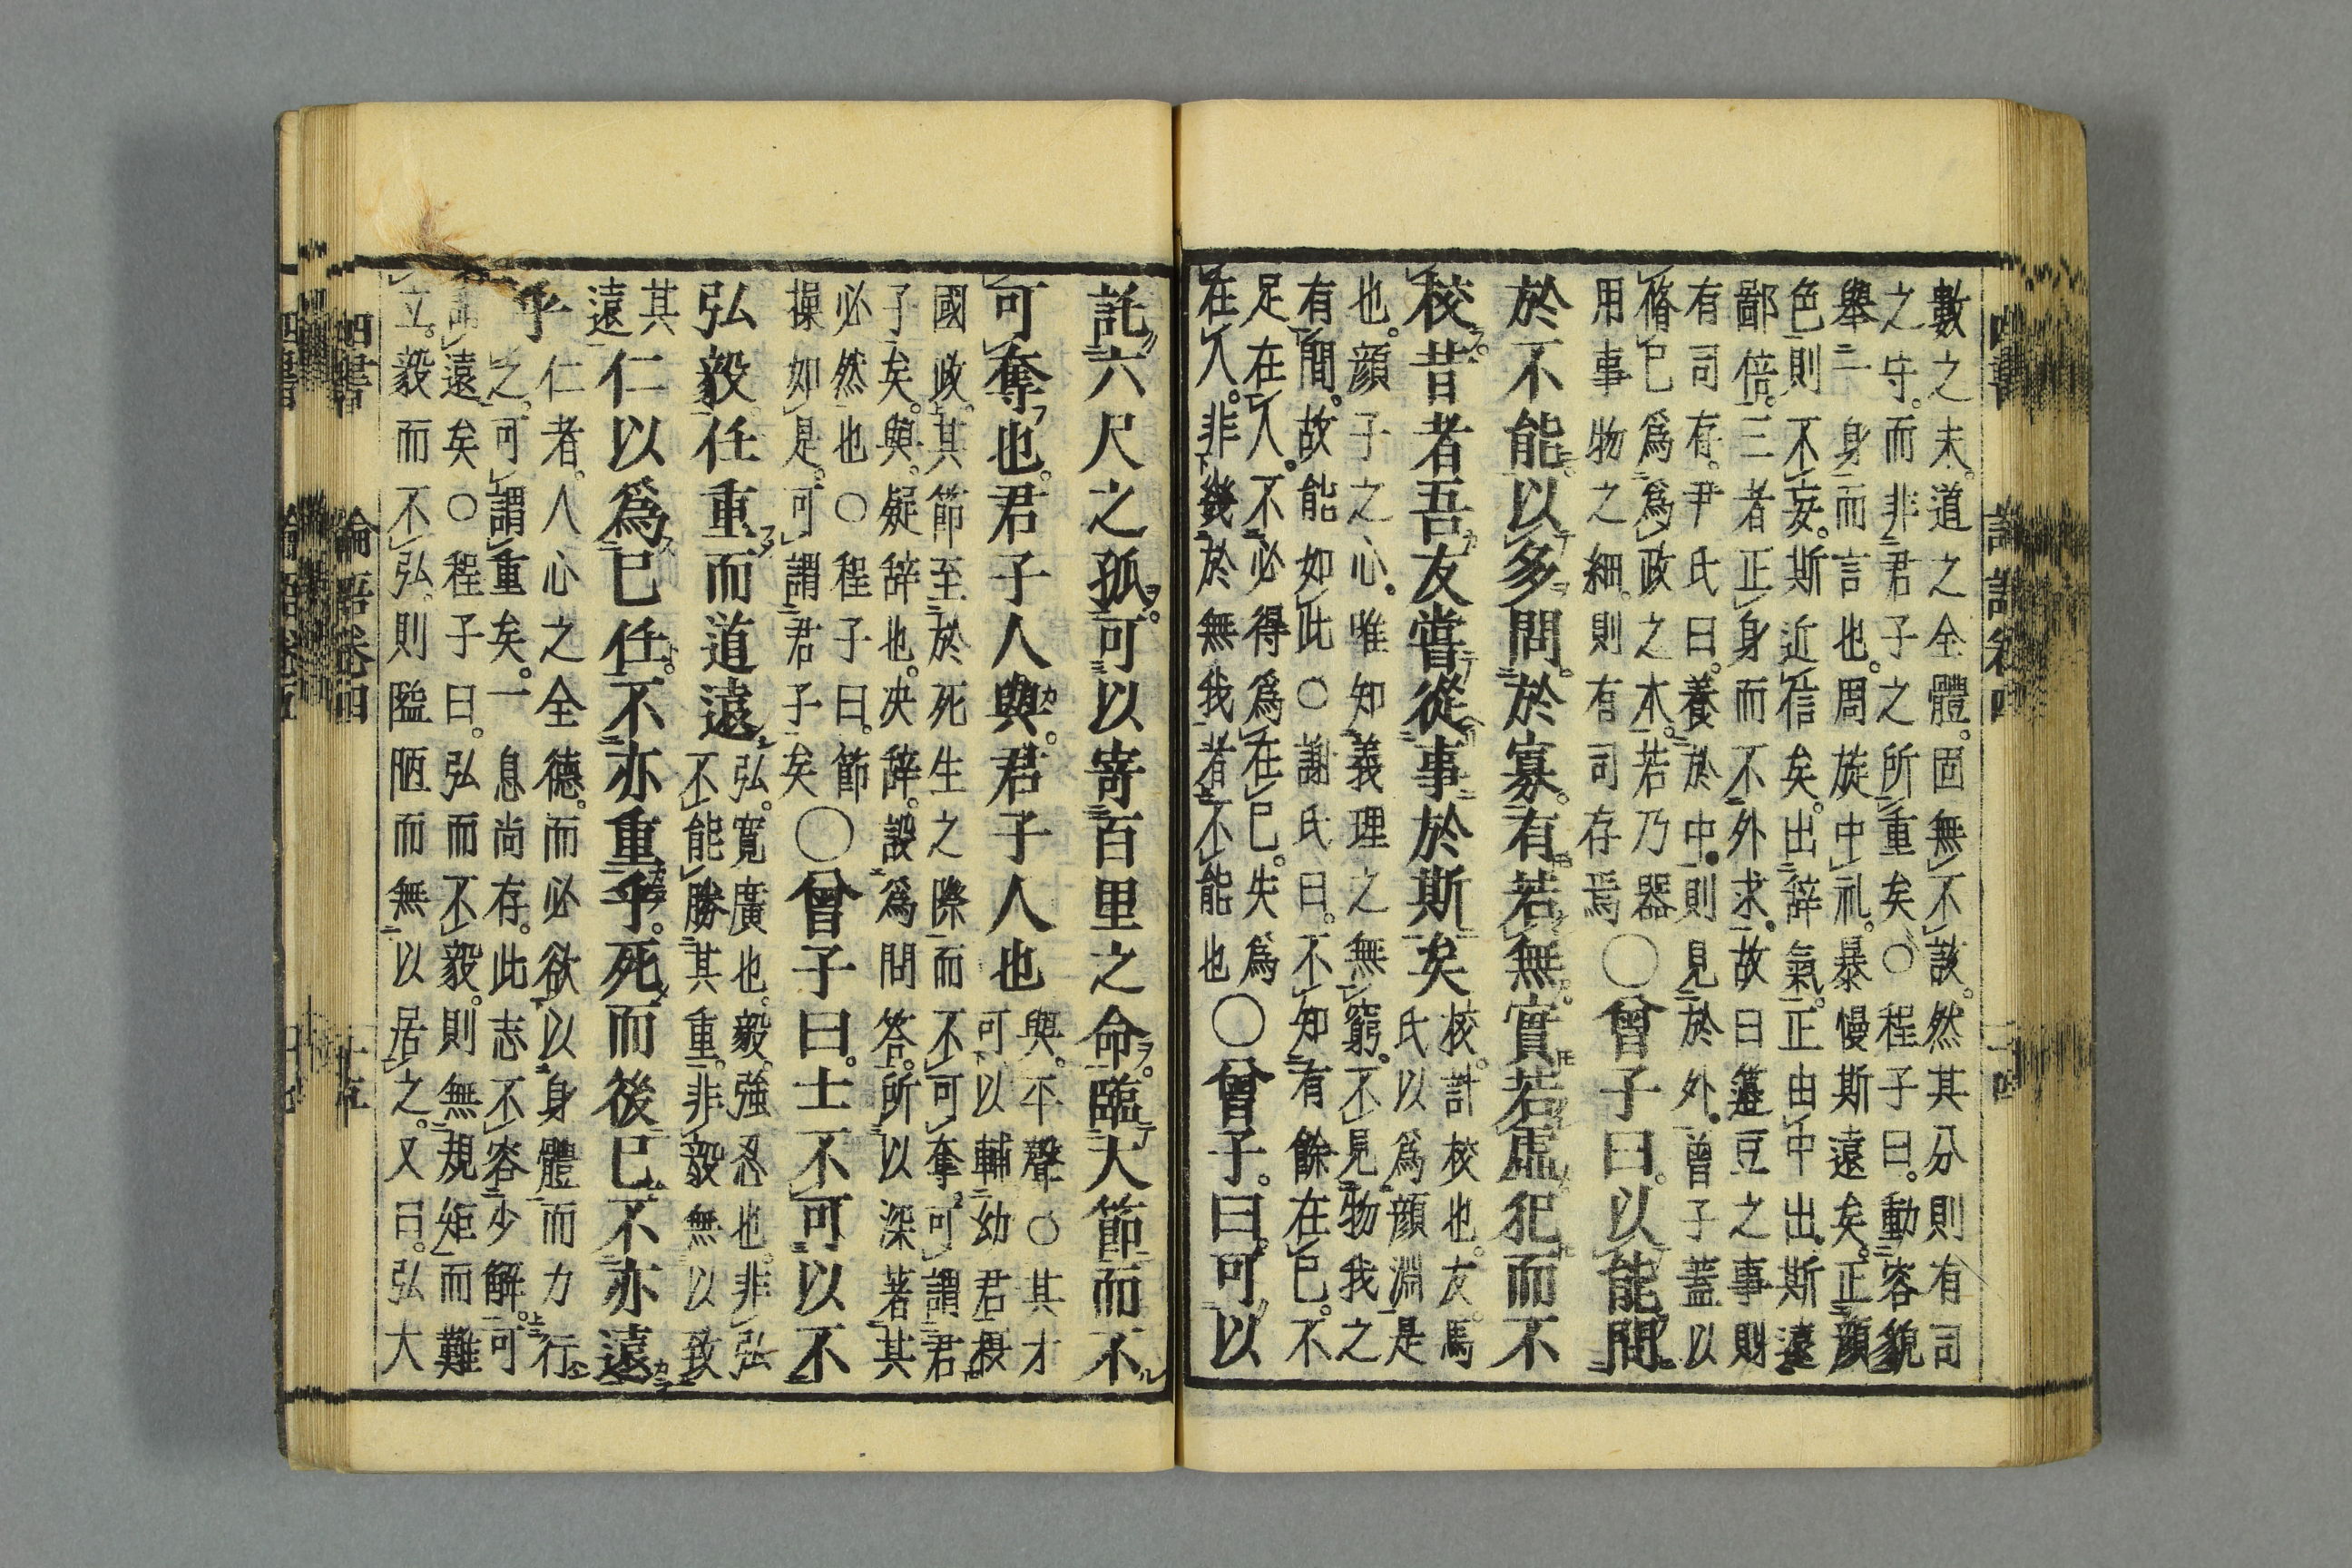 數之末。道之全體。固無不該。然其分則有司
之守。而非君子之所重矣○程子曰。動容貌
舉一身而言也。周旋中礼。暴慢斯遠矣。正顔
色則不妄。斯近信矣。出辞氣。正由中出。斯遠
鄙倍。三者正身而不外求。故曰籩豆之事則
有司存。尹氏曰。養於中。則見於外。曾子蓋以
脩己爲爲政之本。若乃器
用事物之細。則有司存焉
○曾子曰。以能問
於不能。以多問。於寡。有若無。實若虚。犯而不
校。昔者吾友嘗從事於斯矣
校。計校也。友。馬
氏以爲顔淵是
也。顔子之心。唯知義理之無窮。不見物我之
有間。故能如此○謝氏曰。不知有餘在己。不
足在人。不必得爲在己。失爲
在人。非幾於無我者不能也
○曾子。曰。可以
託六尺之孤。可以寄百里之命。臨大節而不
可奪也。君子人與。君子人也
與。平聲○其才
可以輔幼君摂
國政。其節至於死生之際而不可奪。可謂君
子矣。與。疑辞也。决辞。設爲問答。所以深著其
必然也○程子曰。節
操如是。可謂君子矣
○曾子曰。士不可以不
弘毅任重而道遠
弘。寛廣也。毅。強忍也。非弘
不能勝其重。非毅無以致
其
遠
仁以爲己任。不亦重乎。死而後已。不亦遠
乎
仁者。人心之全德。而必欲以身體而力行
之。可謂重矣。一息尚存。此志不容少解。可
謂遠矣○程子曰。弘而不毅。則無規矩而難
立。毅而不弘。則隘陋而無以居之。又曰。弘大
四書
論語卷四
十五